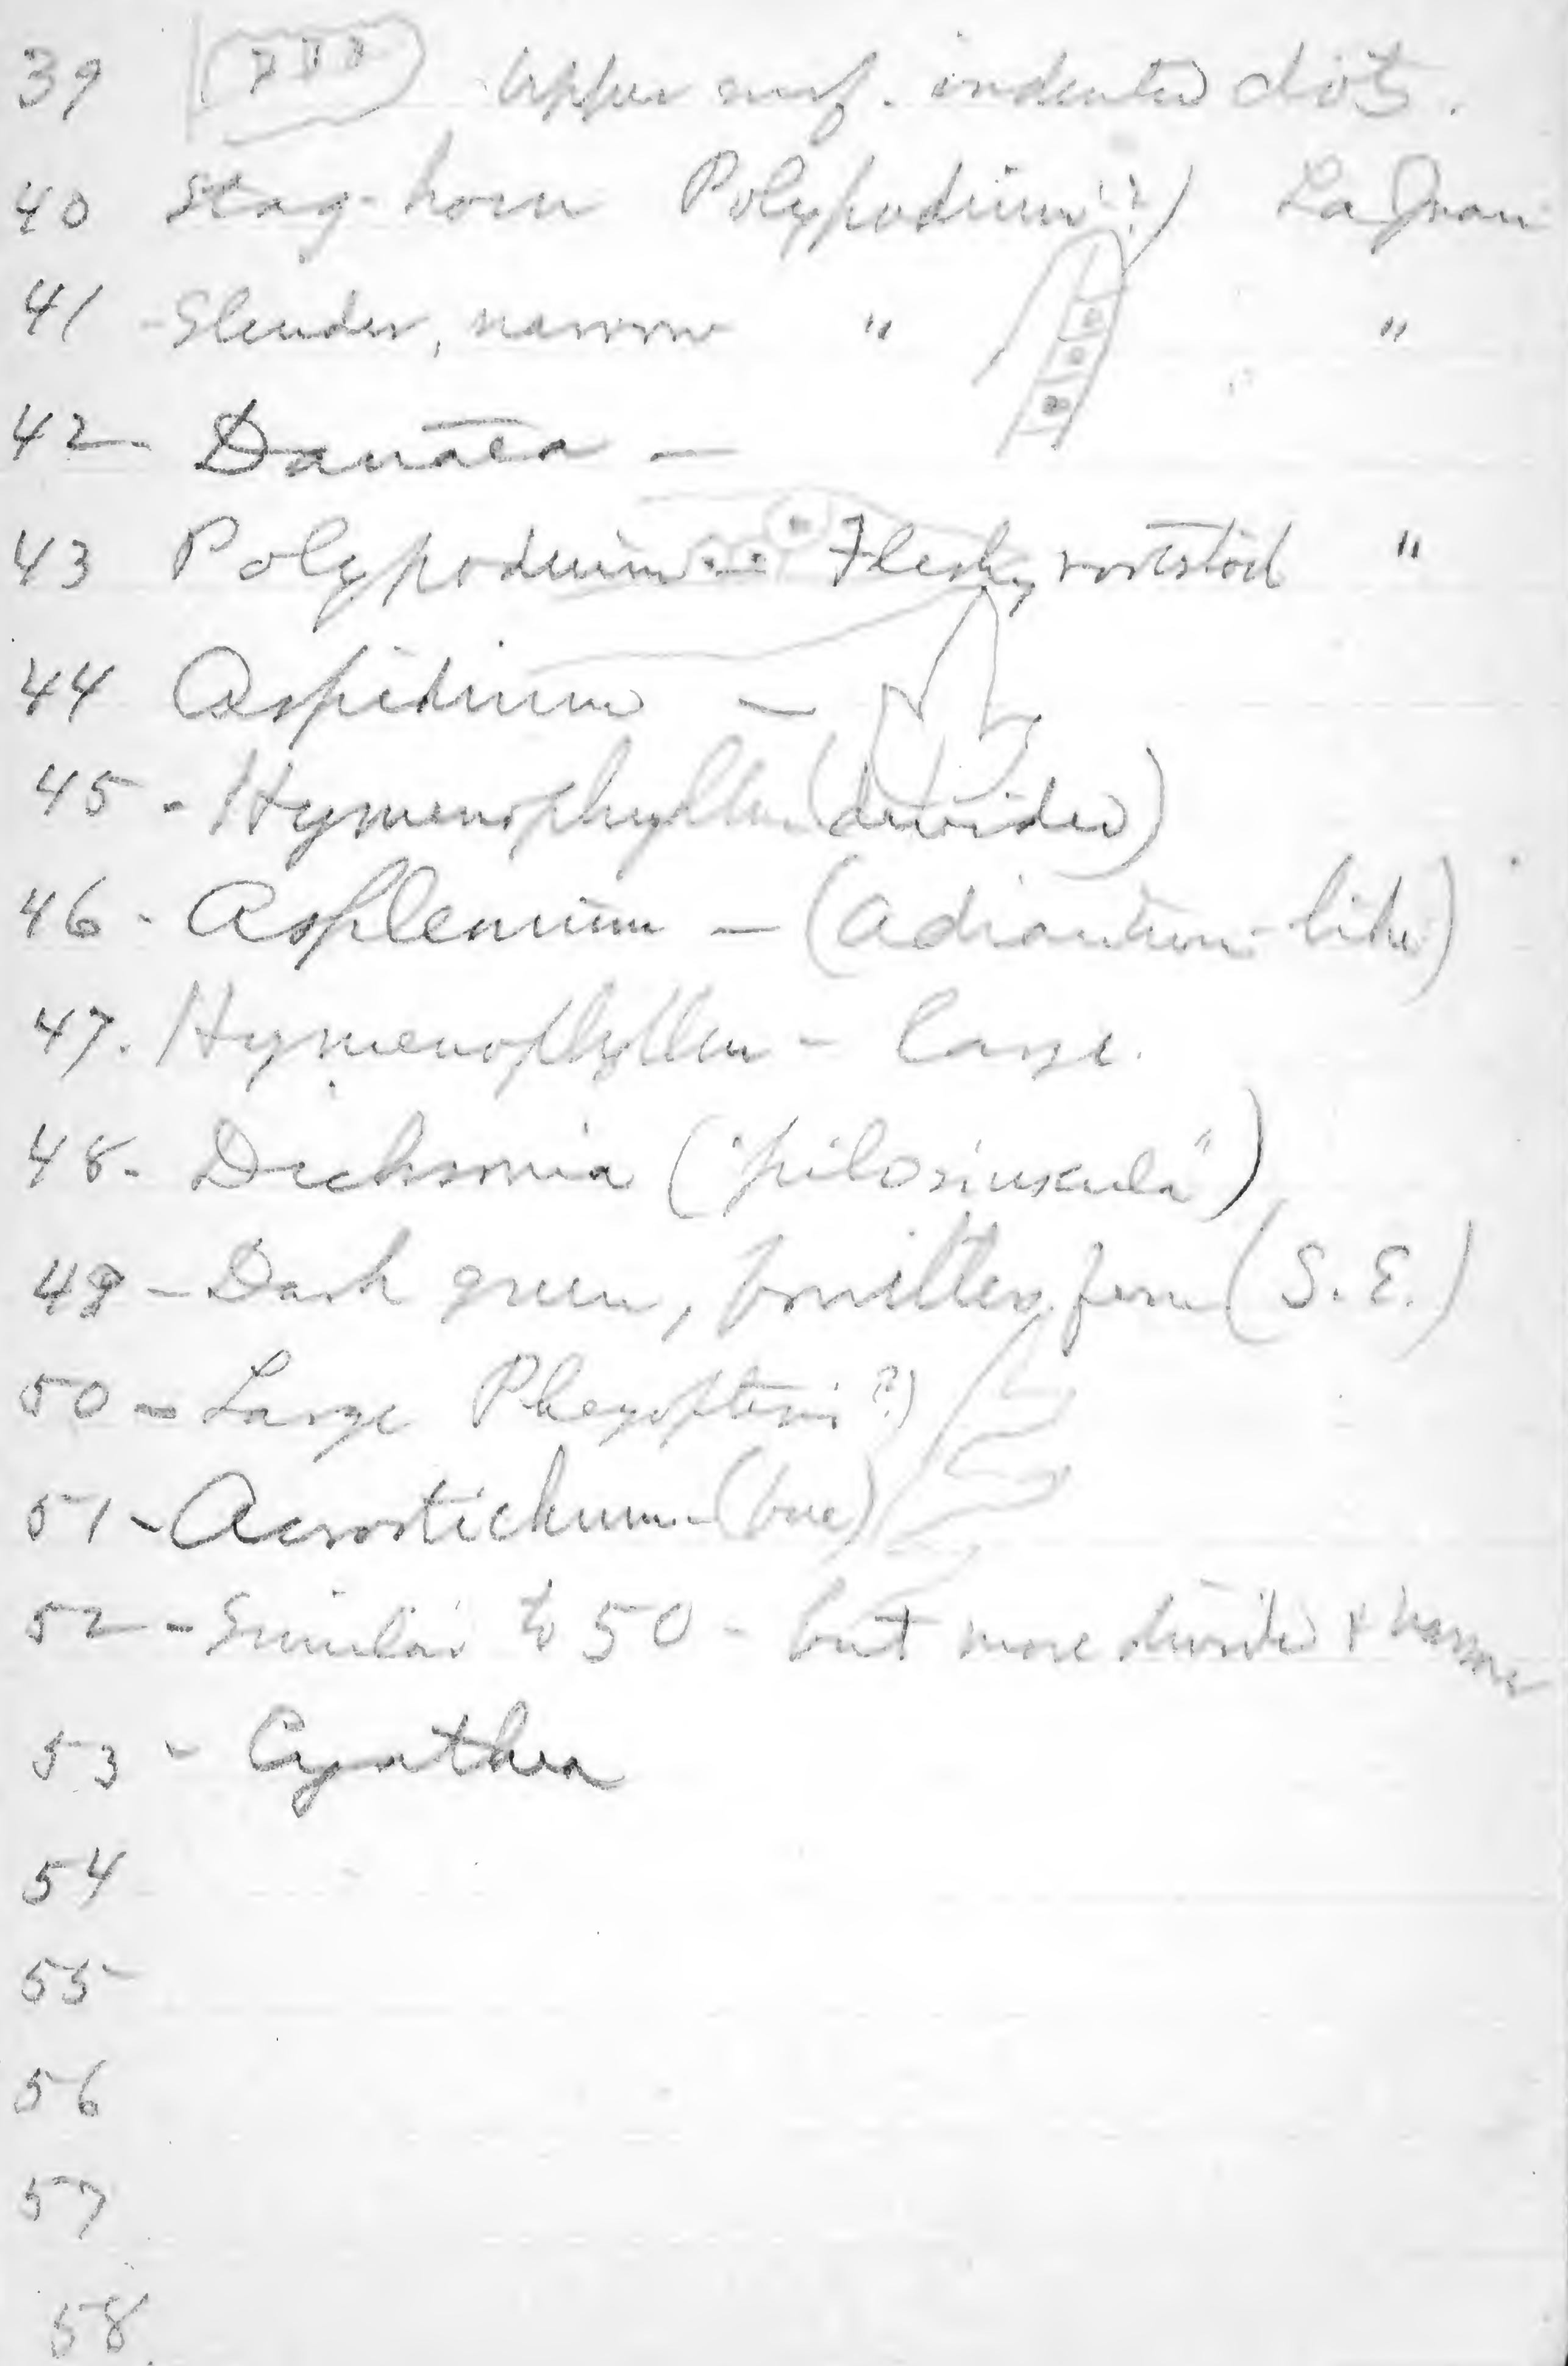 39 Upper surf. indented dots.
40 Stag-horn Polypodium (?) La Gran
41 - Slender, narrow " "
42 - Danaea -
43 Polypodium - Fleshy rootstock "
44 Aspidium -
45 - Hymenophyllum (divided)
46 - Asplenium - (Adiantum-like)
47. Hymenophyllum - large.
48 - Dicksonia ("pilosiuscula")
49 - Dark green, fern (S.E.)
50 - Large Phegopteris (?)
51 - Acrostichum - (true)
52 - Similar to 50 - but more divided & narrow
53 - Cyathea
54
55
56
57
58